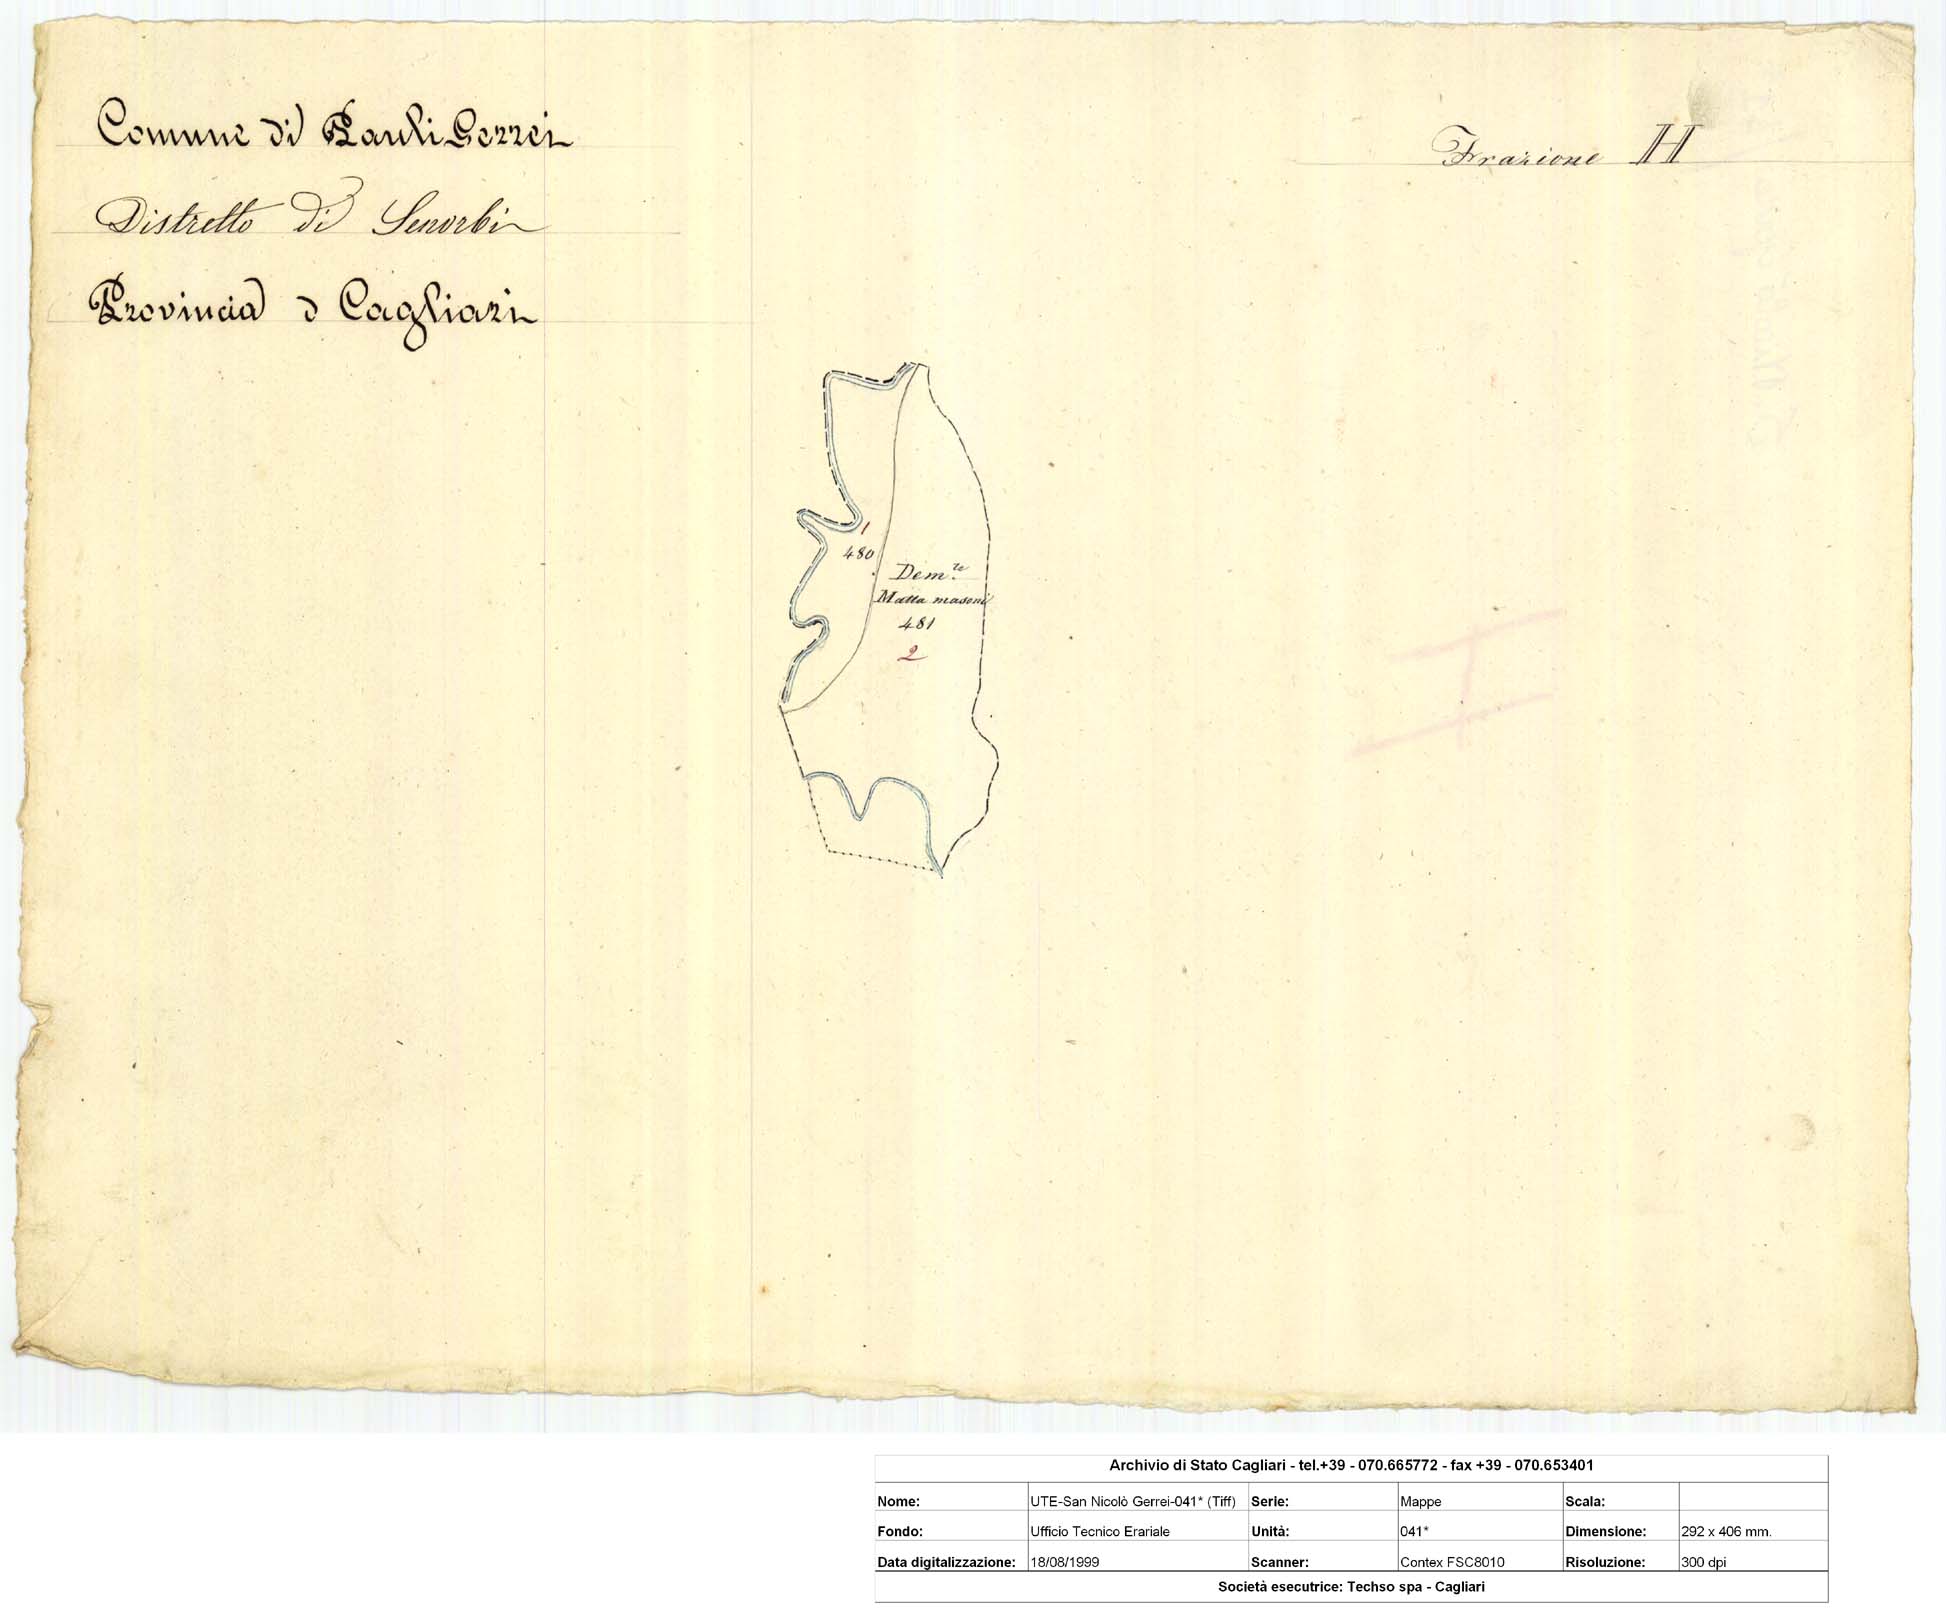 Comune di Pauli Gerrei
Frazione H
Distretto di Senorbì
Provincia d Cagliari
1
480
Dem.le
Matta masoni
481
2
H
Archivio di Stato Cagliari - tel.+39 - 070.665772 - fax +39 - 070.653401
Nome: UTE-San Nicolò Gerrei-041* (Tiff) Serie: Mappe Scala:
Fondo: Ufficio Tecnico Erariale Unità: 041* Dimensione: 292 x 406 mm.
Data digitalizzazione: 18/08/1999 Scanner: Contex FSC8010 Risoluzione: 300 dpi
Società esecutrice: Techso spa - Cagliari